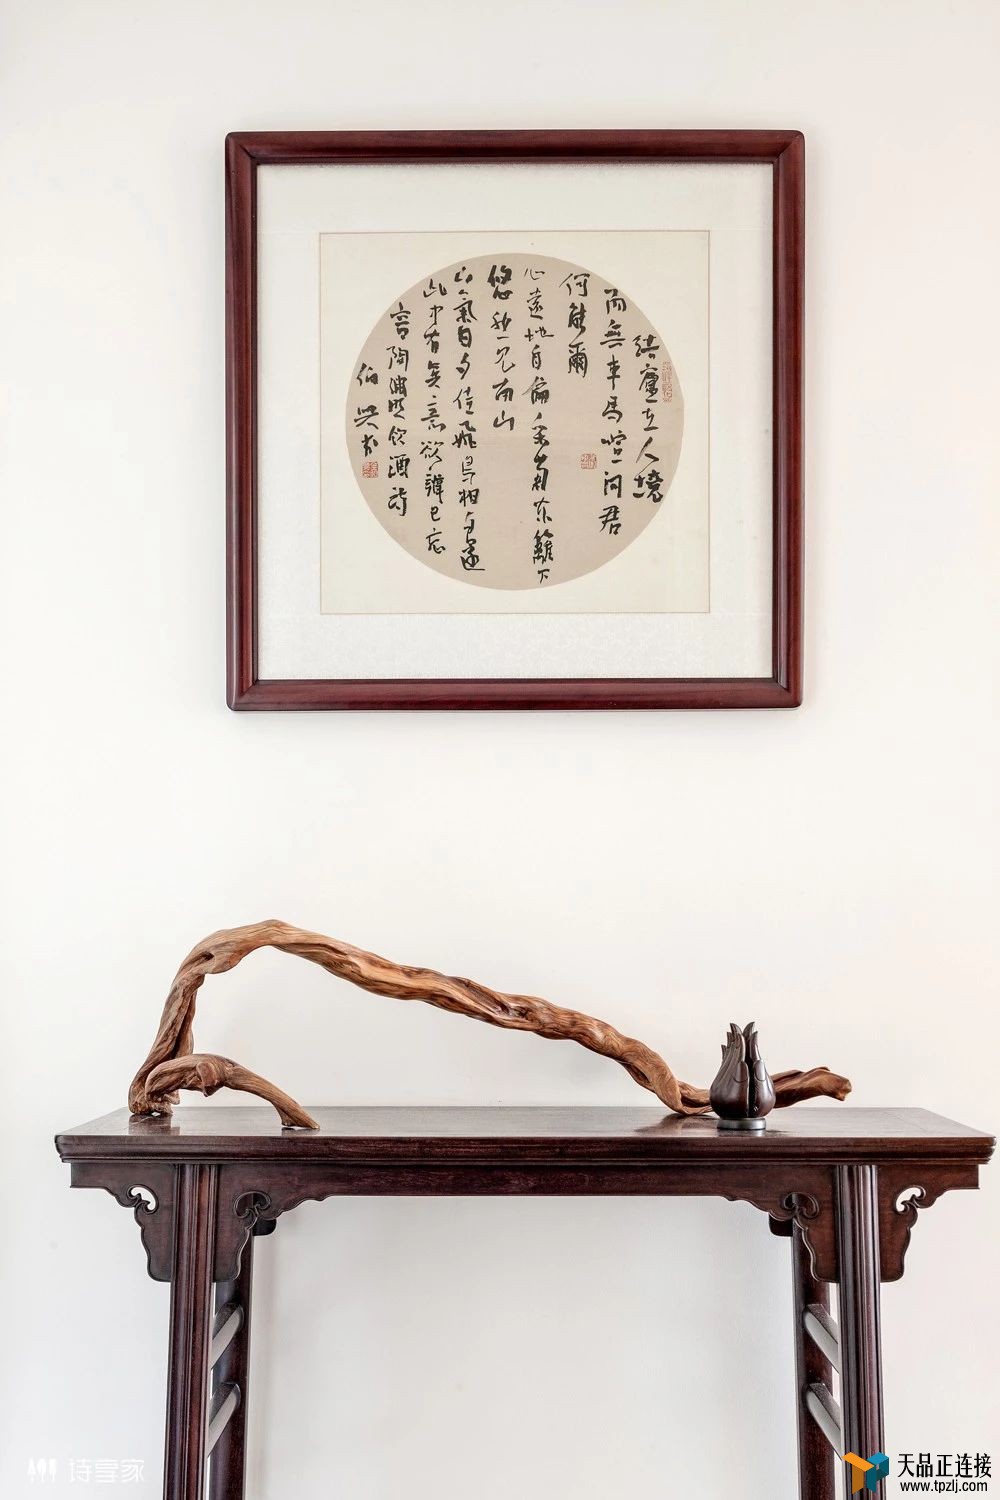 結廬在人境
而無車馬喧問君
何能爾
心遠地自偏采菊東籬下
悠然見南山
山氣日夕佳飛鳥相與還
此中有真意欲辨已忘
言陶淵明飲酒詩
伯
诗享家
天品正连接
www.tpzlj.com